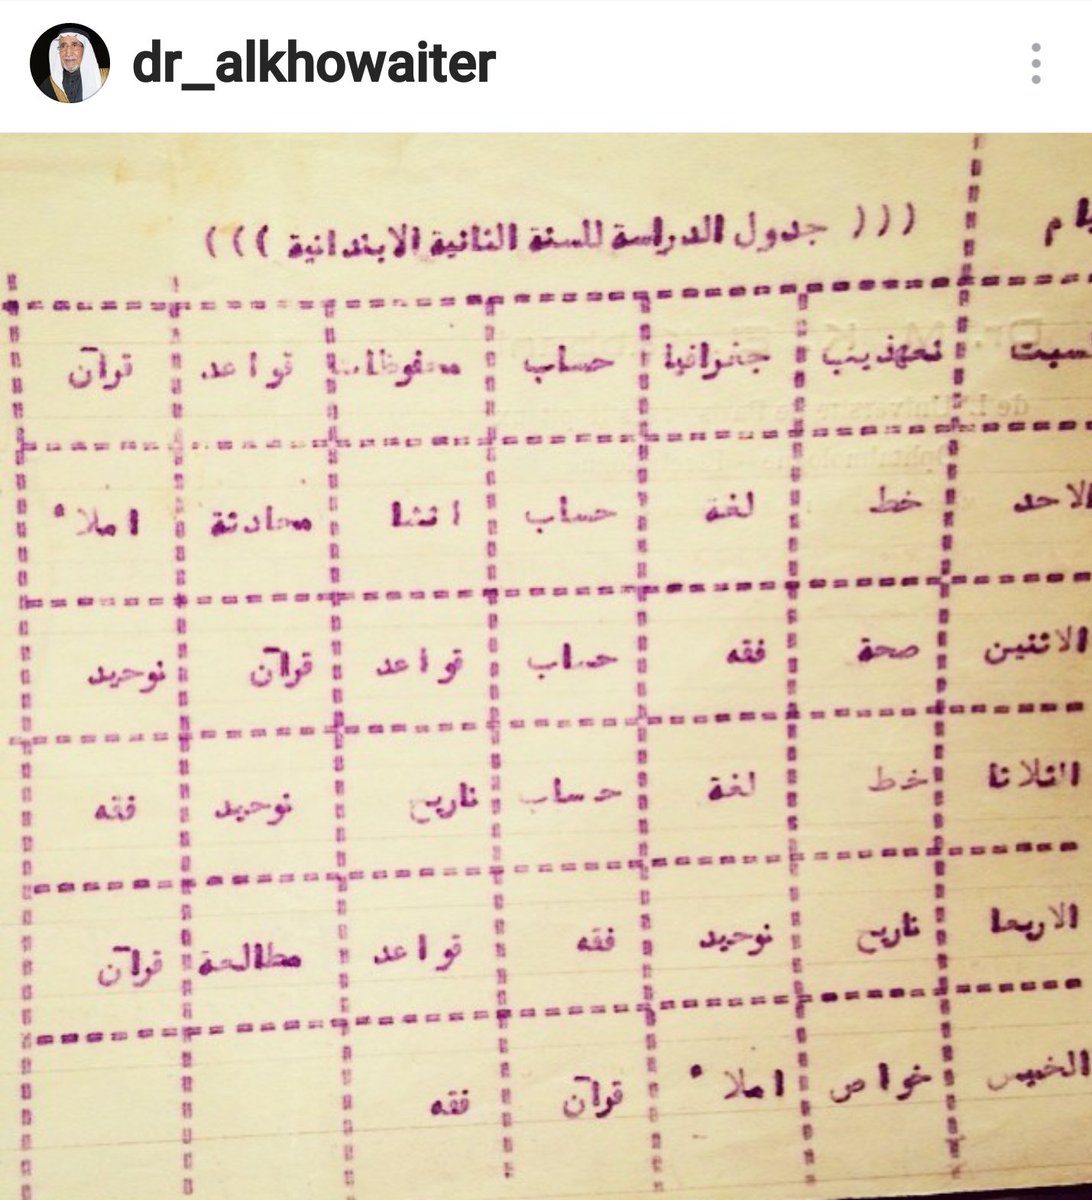 dr_alkhowaiter
((( جدول الدراسة للسنة الثانية الابتدائية )))
يام
سبت تهذيب جغرافيا حساب محفوظات قواعد قرآن
الاحد خط لغة حساب انشا محادثة املاء
الاثنين صحة فقه حساب قواعد قرآن توحيد
الثلاثا خط لغة حساب تاريخ توحيد فقه
الاربعا تاريخ توحيد فقه قواعد مطالعة قرآن
الخميس خواص املاء قرآن فقه